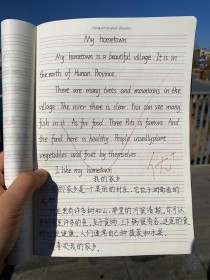 My hometown
My hometown is a beautiful village. It is in
the north of Hunan Province.
There are many trees and mountains in the
village. The river there is clear. You can see many
fish in it. As for food, Three Pots is famous. And
the food here is healthy. People usually plant
vegetables and fruit by themselves.
I like my hometown.
优
我的家乡
我的家乡是一个美丽的村庄。它位于湖南的
北部。
村庄里有许多树和山。那里的河流清澈。你可以
看到许多鱼在里面。至于食物,三下锅很有名。这里的食
物也很健康。人们通常自己种蔬菜和水果。
我喜欢我的家乡。